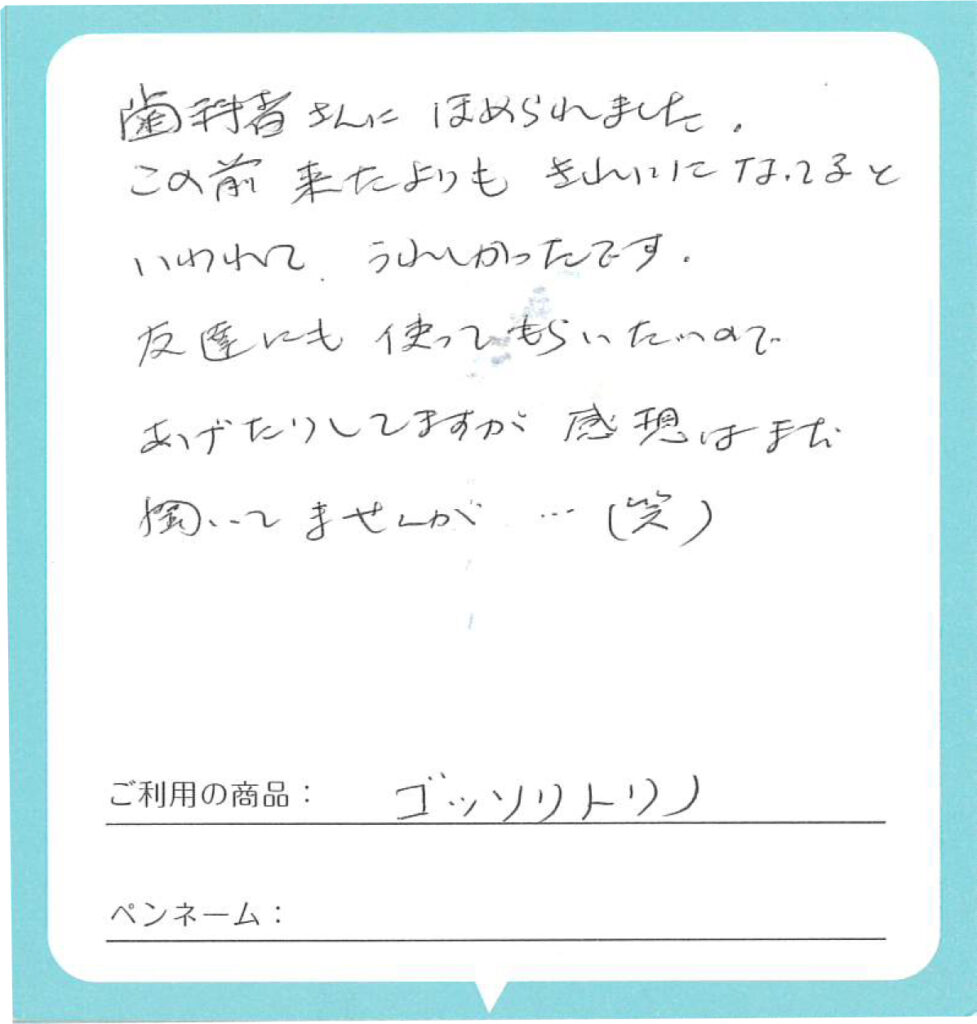 歯科者さんに ほめられました。
この前 来たよりも きれいになってると
いわれて、うれしかったです。
友達にも 使ってもらいたいので
あげたりしてますが 感想はまだ
聞いてませんが …(笑)
ご利用の商品： ゴッソリトリノ
ペンネーム：